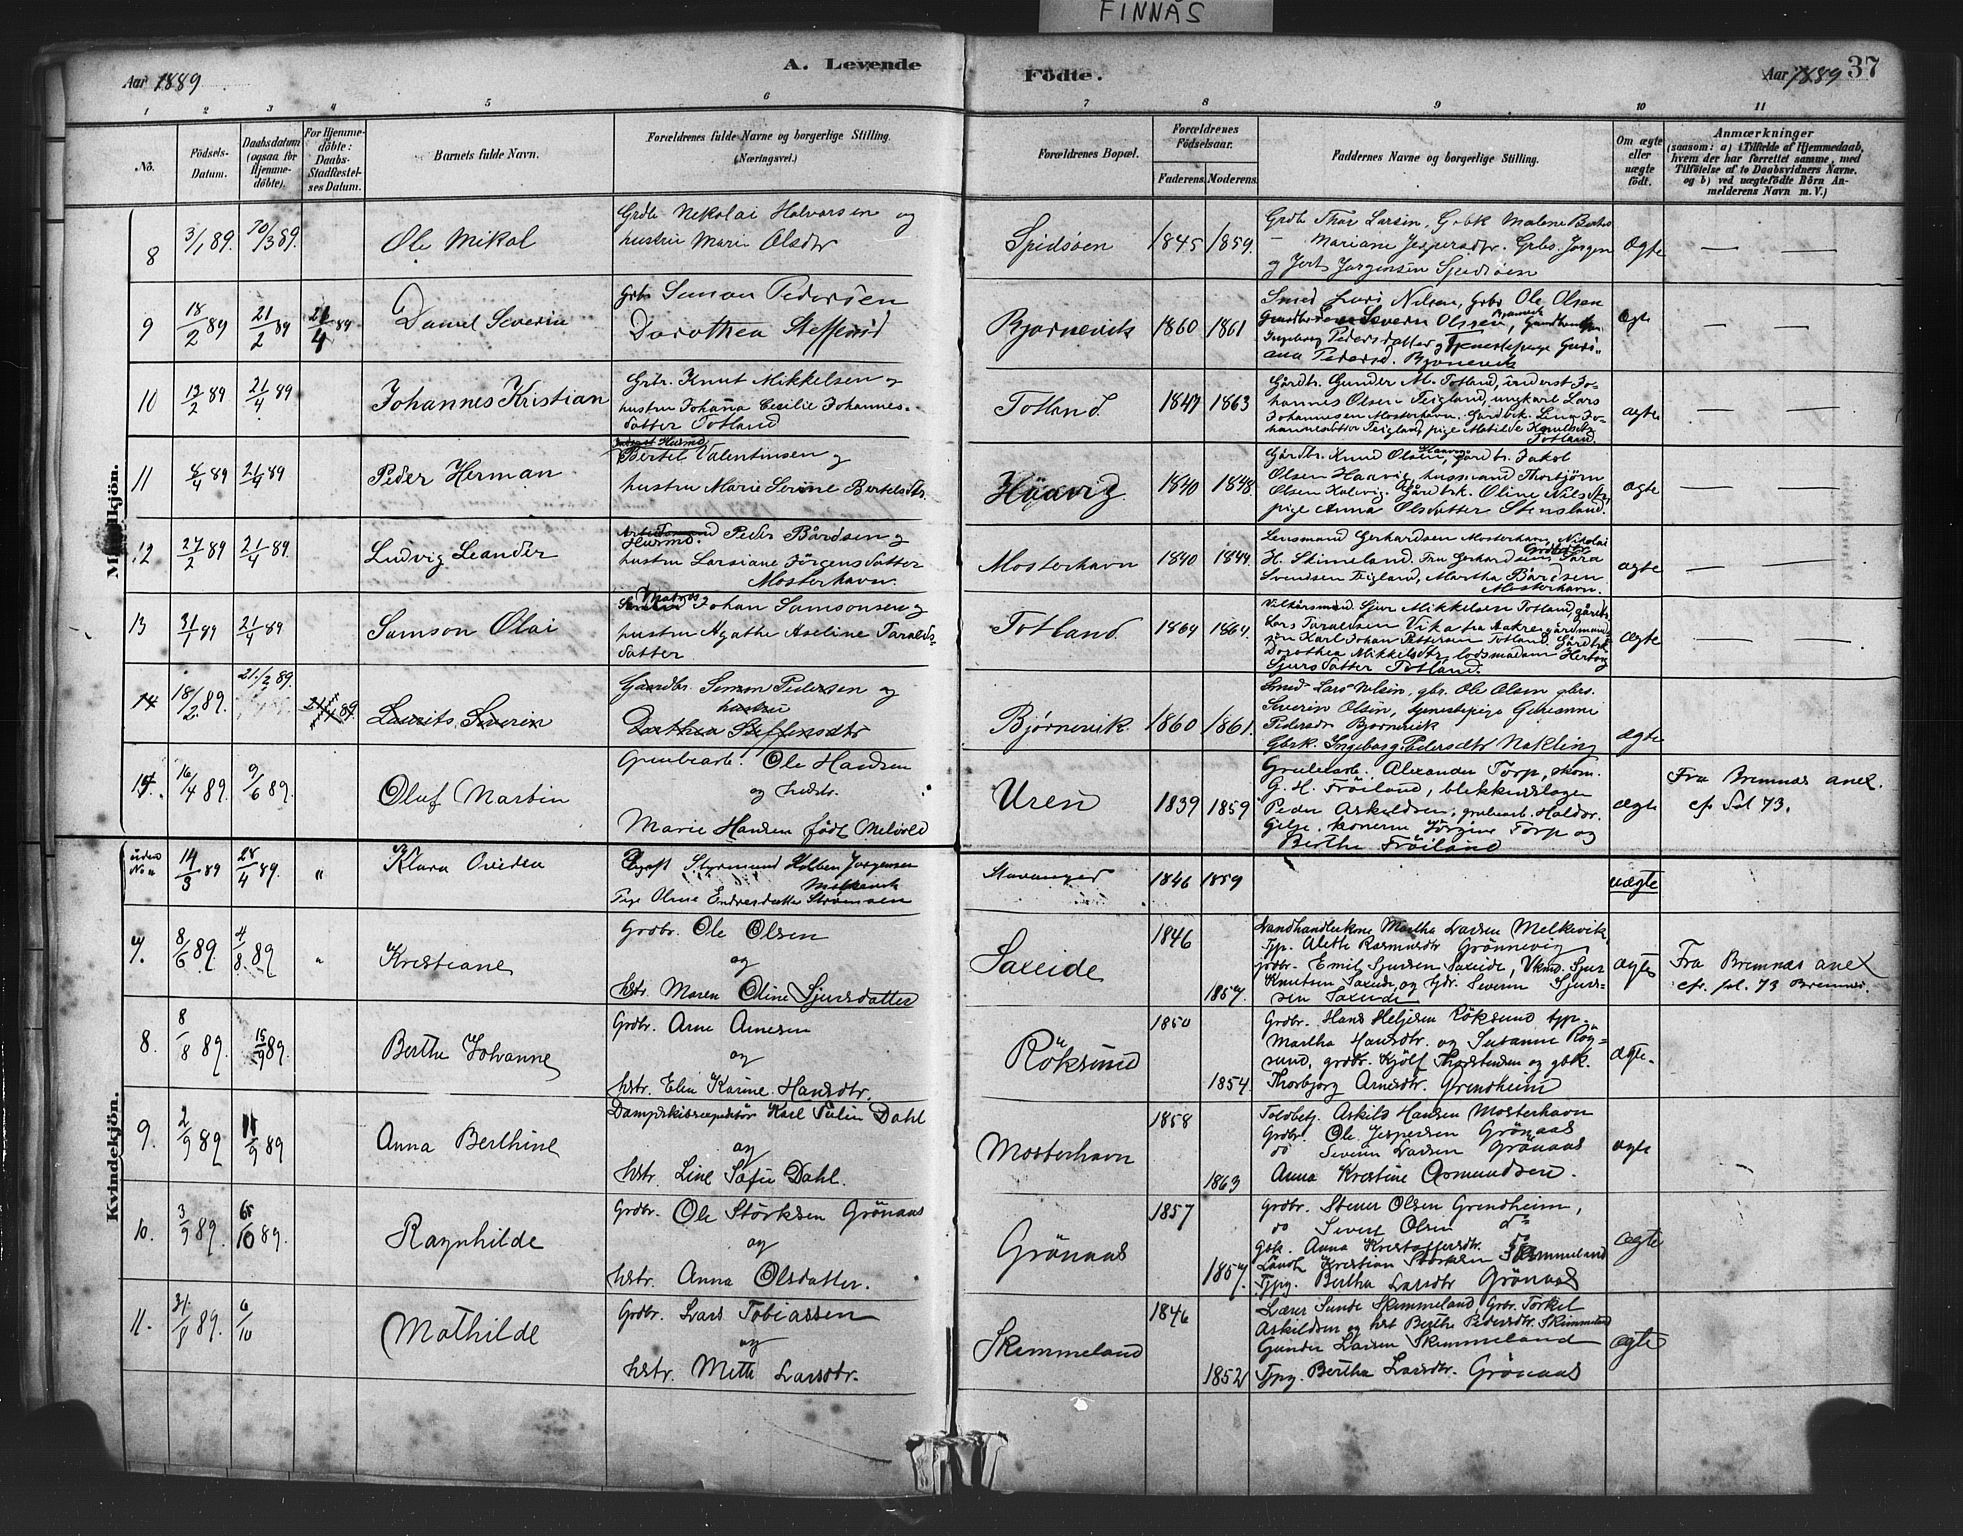 FINNÅS
Aar 1889
A. Levende
Födte.
Aar 1889 37
1 2 3 4 5 6 7 8 9 10 11
No.
Födsels-Datum.
Daabsdatum (ogsaa for Hjemme-döbte).
For Hjemme-döbte: Daabs-Stadfæstel-ses Datum.
Barnets fulde Navn.
Forældrenes fulde Navne og borgerlige Stilling.
(Næringsvei.)
Forældrenes Bopæl.
Forældrenes Födselsaar.
Faderens. Moderens.
Faddernes Navne og borgerlige Stilling.
Om ægte eller uægte født.
Anmærkninger
(saasom: a) i Tilfælde af Hjemmedaab,
hvem der har forrettet samme, med
Tilföielse af to Daabsvidners Navne.
og b) ved uægtefödte Börn An-
melderens Navn m. V.)
Kvindekjön.
8 3/1 89. 10/3 89. Ole Mikal
Grdb Nikolai Halvorsen og
hustru Marie Olsdtr
Spidsøen 1845 1859. Ægte — —
og Jorgensen Spidsøen
9 18/2 89 21/2 89 21/4 89 Daniel Severin
Grbr Simon Pedersen
Dorothea Steffensd
Bjornevik 1860 1861 Ægte — —
Smed Lars Nilsen, Grbr Ole Olsen
Severin Olsen,
Ingeborg Pedersdatter og Tjenestepige
Pedersd. Bjornevik
10 13/2 89 21/4 89 Johannes Kristian
Grbr. Knut Mikkelsen og
hustru Johana Cecilie Johannes-
datter Totland
Totland 1847 1863 ægte — —
Gårdbr. Gunder M. Totland, inderst Jo-
hannes Olsen Teigland, ungkarl Lars
Johannesen Mosterhavn. Gårdbrk. Lina Jo-
hannesdatter Teigland, pige Matilde Knutsdtr
Totland.
11 8/4 89 21/4 89 Peder Herman
Bertel Valentinsen og
hustru Marie Serine Bertelsdtr.
Håavig 1840 1848. ægte — —
Gårdbr. Knud Olsen Haavig, gårdbr. Jakob
Olsen Haavig, husmand Thorbjörn
Olsen Halvig. Gårdbrk. Oline Nilsdtr,
pige Anna Olsdatter Stensland.
12 27/2 89 21/4 89. Ludvig Leander
Husmd. Peder Bårdsen og
hustru Larsiane Jörgensdatter
Mosterhavn.
Mosterhavn 1840 1844. ægte — —
Lensmand Gerhardsen Mosterhavn, Nikolai
H. Skimeland. Fru Gerhardsen, Sara
Svendsen Teigland, Martha Bårdsen
Mosterhavn.
13 31/1 89 21/4 89 Samson Olai
Matros Johan Samsonsen og
hustru Agathe Aseline Taralds-
datter
Totland 1864 1864. Ægte — —
Vilkårsmand. Sjur Mikkelsen Totland, gårdb.
Lars Taraldsen Vika fra Aakre,
Karl Johan Pettersen Totland. Gårdbrk
Dorothea Mikkelsdtr, lodsmadam Hertog
Sjursdatter Totland.
14 18/2 89. 21/2 89. 21/4 89. Laurits Severin
Gaardbr. Simon Pedersen og
hustru
Dorthea Steffensdtr
Bjørnevik. 1860 1861. ægte
Smed Lars Nelsen, gbr. Ole Olsen gbrs.
Severin Olsen, tjenestepige
Pedersdr Bjornevik
Gbsk. Ingeborg Pedersdtr Nakling
14. 16/4 89. 9/6 89. Oluf Martin
Ole Hansen
og hustr.
Marie Hansen født Melvold
Uren 1839 1859 ægte
Alexander Torp, skom.
G. H. Fröiland, blekkenslager
Peder Askeldsen, grubearb. Haldor.
Gjelse, konerne Jörgine Torp og
Berthe Fröiland
Fra Bremnæs anex.
cf. fol 73.
uden No 14/3 89 28/4 89. " Klara Ovedea
Styrmand Jorgensen
Pige Oline Endresdatter
Stavanger 1846 1859 uægte
7. 8/6 89 4/8 89 " Kristiane
Grdbr. Ole Olsen
og
hstr. Maren Oline Sjursdatter
Saxeide 1846 1857. ægte
Landhandlerkone Martha Larsen Melkevik,
Tjp. Alette Rasmusdtr Grönnevig
grdbr. Emil Sjursen Saxeide, Vkmd. Sjur
Knutsen Saxeide og Gdr. Severin Sjurs-
sen Saxeide
Fra Bremnæs anex
cfr. fol. 73 Bremnæs.
8. 8/8 89. 15/9 89. Berthe Johanne
Grdbr. Arne Arnesen
og
hstr. Elen Karine Hansdtr.
Röksund 1850 1854. ægte.
Grdbr. Hans Heljesen Röksund tjp.
Martha Hansdtr. og Susanne Rög-
sund, grdbr. Kjölf Thorstensen og gbk.
Thorbjorg Arnesdtr. Grendheim
9. 2/9 89 11/9 89 Anna Berthine
Dampskibsexpeditör Karl Tulin Dahl
og
hstr. Line Sofie Dahl.
Mosterhavn 1858 1863 ægte
Toldbetj. Askild Hansen Mosterhavn
Grdbr. Ole Jespersen Grönaas
do Severin Larsen Grönaas
Anna Kristine Osmundsen.
10. 3/9 89. 6/10 89. Raynhilde
Grdbr. Ole Störksen Grönaas
og
hstr. Anna Olsdatter.
Grönaas 1857 1857. Ægte
Grdbr. Stener Olsen Grendheim,
do Sevest Olsen do
Gbk. Anna Kristoffersdtr. do
Kristian Störksen
Tjpg. Bertha Larsdtr Grönaas
11. 31/8 89. 6/10 Mathilde
Grdbr. Lars Tobiassen
og
hstr. Mette Larsdtr.
Skimmeland 1846 1852 ægte
Lærer Sunde Skimmeland, Grbr. Torkel
Askildsen og hst Berthe Pedersdtr. Skimmeland
Gunder Larsen Skimmeland
Tjpg. Bertha Larsdtr. Grönaas